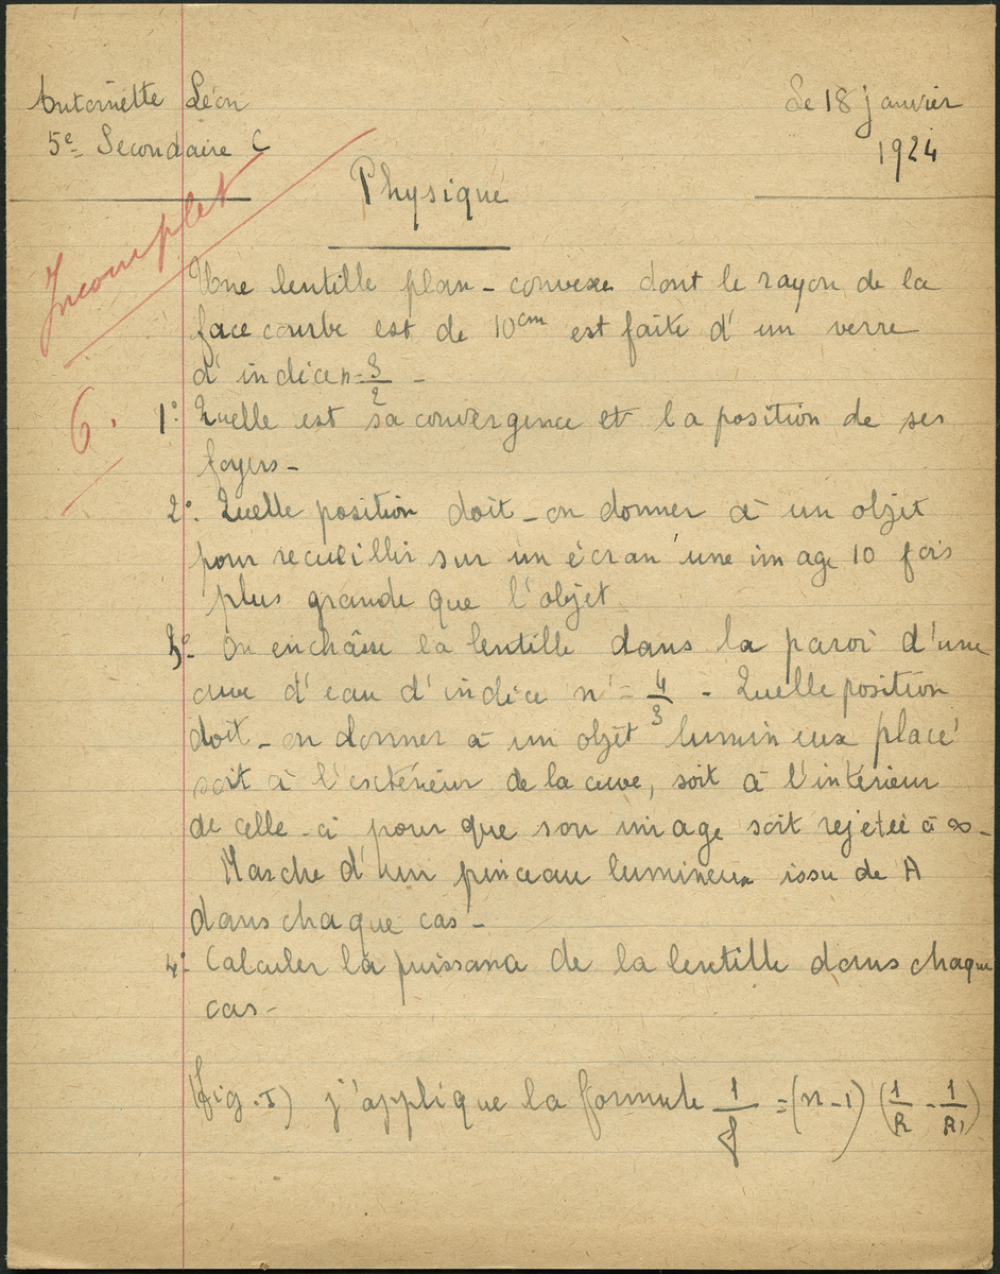 Antoinette Léon
Le 18 janvier
5e Secondaire C
1924
Physique
Incomplet
Une lentille plan-convexe dont le rayon de la
face courbe est de 10cm est faite d'un verre
d'indice n=3/2 -
6.
1° Quelle est sa convergence et la position de ses
foyers -
2° Quelle position doit-on donner à un objet
pour recueillir sur un écran une image 10 fois
plus grande que l'objet
3° On enchâsse la lentille dans la paroi d'une
cuve d'eau d'indice n' = 4/3 - Quelle position
doit-on donner à un objet lumineux placé
soit à l'extérieur de la cuve, soit à l'intérieur
de celle-ci pour que son image soit rejetée à ∞ -
Marche d'un pinceau lumineux issu de A
dans chaque cas -
4° Calculer la puissance de la lentille dans chaque
cas -
(fig. I) j'applique la formule 1/f = (n-1) (1/R - 1/R1)